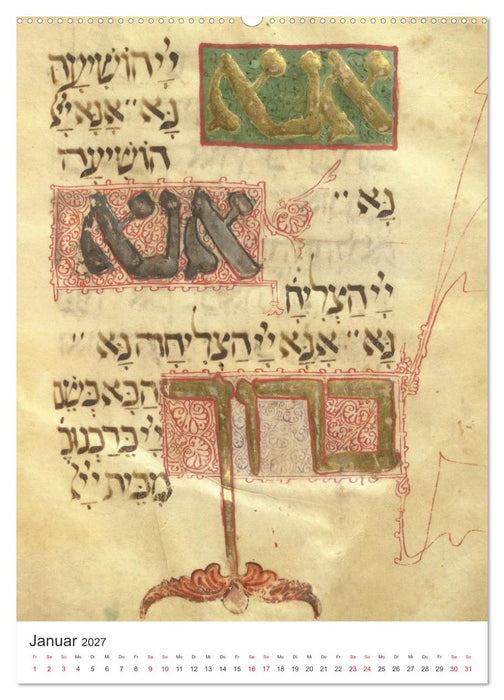 אנא יְיָ הוֹשִׁיעָה
נָּא״ אָנָּא יְיָ
הוֹשִׁיעָה
נָּא״
אנא
יְיָ הַצְלִיחָ
נָּא״ אָנָּא יְיָ הַצְלִיחָה נָּא״
ברוך הַבָּא בְּשֵׁם
יְיָ בֵּרַכְנוּכֶ
מִבֵּית יְיָ
Januar 2027
Fr Sa So Mo Di Mi Do Fr Sa So Mo Di Mi Do Fr Sa So Mo Di Mi Do Fr Sa So Mo Di Mi Do Fr Sa So
1 2 3 4 5 6 7 8 9 10 11 12 13 14 15 16 17 18 19 20 21 22 23 24 25 26 27 28 29 30 31